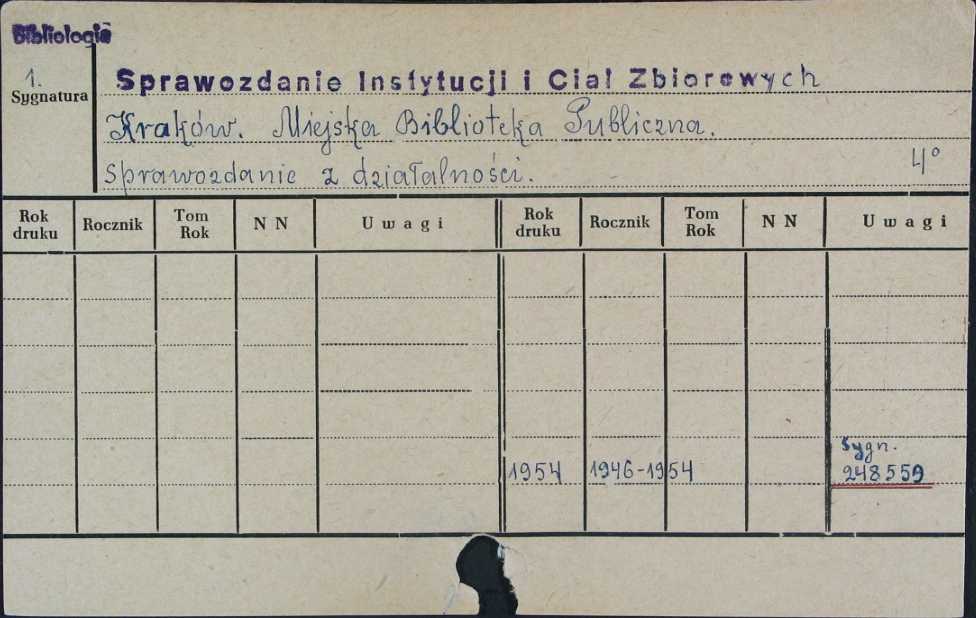 Bibliologia
1.
Sygnatura
Sprawozdanie Instytucji i Ciał Zbiorowych
Kraków. Miejska Biblioteka Publiczna.
sprawozdanie z działalności.
4°
Rok druku Rocznik Tom Rok N N Uwagi Rok druku Rocznik Tom Rok N N Uwagi
Sygn.
1954 1946-1954 248559